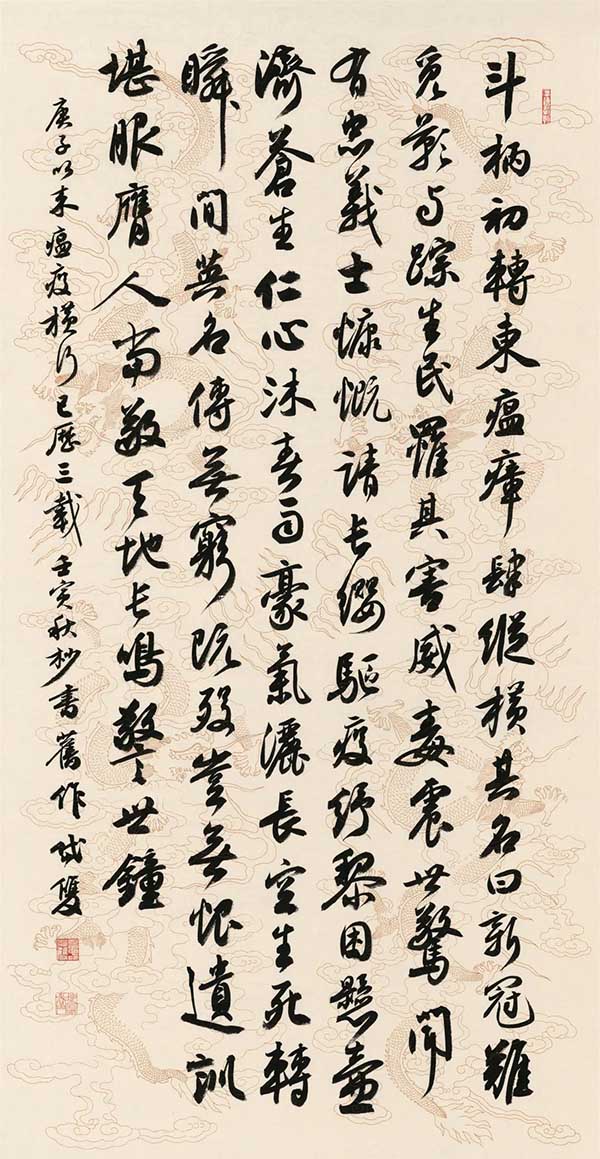 斗柄初轉東瘟瘴肆縱橫其名曰新冠難
覓影與蹤生民罹其害威毒震世驚聞
有忠義士慷慨請長纓驅疫紓黎困懸壺
濟蒼生仁心沐春雨豪氣灑長空生死轉
瞬間英名傳無窮既歿豈無恨遺訓
堪服膺人當敬天地長鳴警世鐘
庚子以來瘟疫橫行已歷三載壬寅秋杪書舊作